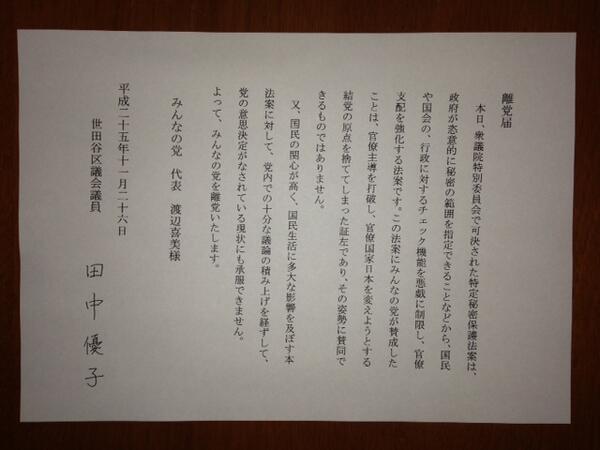 離党届
本日、衆議院特別委員会で可決された特定秘密保護法案は、
政府が恣意的に秘密の範囲を指定できることなどから、国民
や国会の、行政に対するチェック機能を悪戯に制限し、官僚
支配を強化する法案です。この法案にみんなの党が賛成した
ことは、官僚主導を打破し、官僚国家日本を変えようとする
結党の原点を捨ててしまった証左であり、その姿勢に賛同で
きるものではありません。
又、国民の関心が高く、国民生活に多大な影響を及ぼす本
法案に対して、党内での十分な議論の積み上げを経ずして、
党の意思決定がなされている現状にも承服できません。
よって、みんなの党を離党いたします。
みんなの党 代表 渡辺喜美様
平成二十五年十一月二十六日
世田谷区議会議員
田中優子